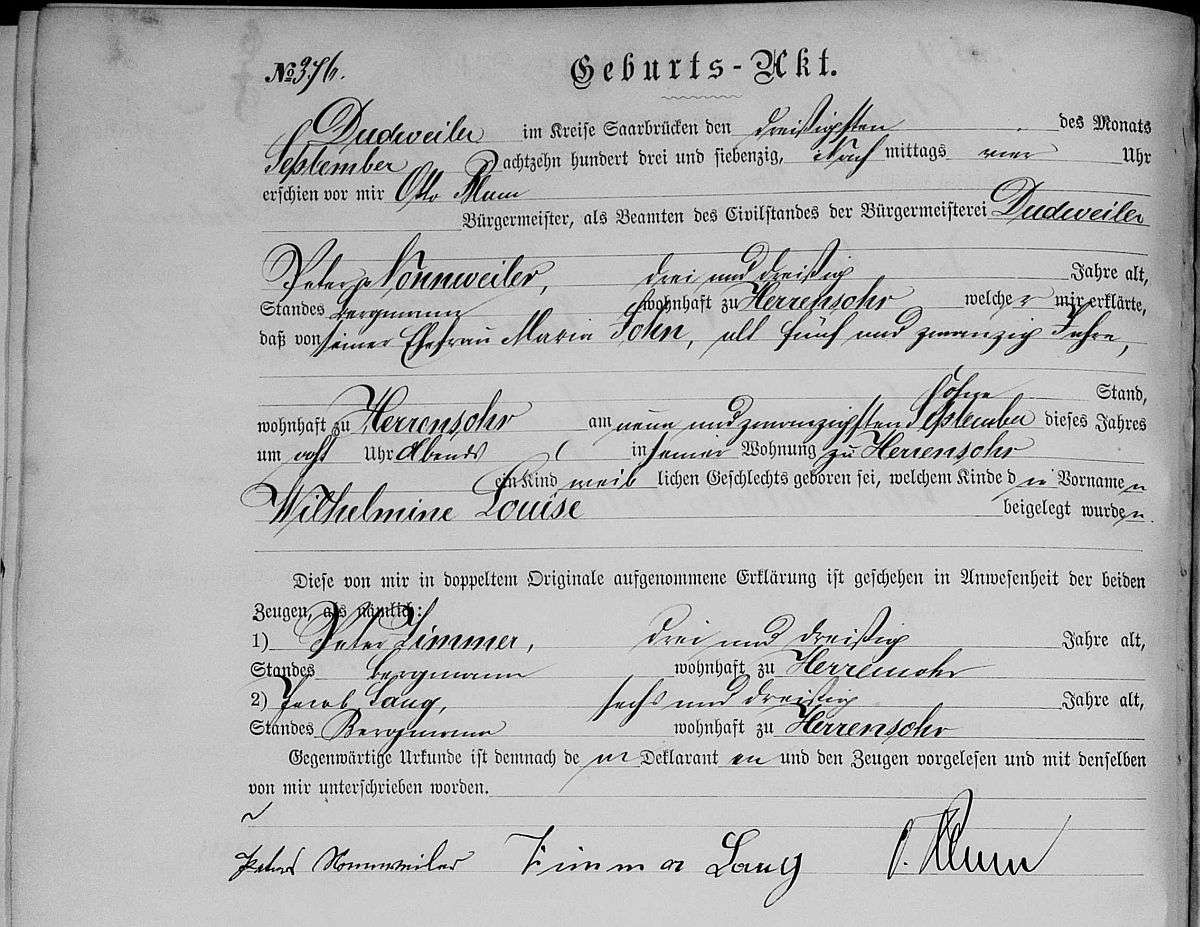 № 376. Geburts-Akt.
Dudweiler im Kreise Saarbrücken den dreißigsten des Monats
September achtzehn hundert drei und siebenzig, Nach mittags vier Uhr
erschien vor mir Otto
Bürgermeister, als Beamten des Civilstandes der Bürgermeisterei Dudweiler
Peter Nonnweiler, drei und dreißig Jahre alt,
Standes Bergmann wohnhaft zu Herrensohr welche r mir erklärte,
daß von seiner Ehefrau Maria John, alt fünf und zwanzig Jahre,
ohne Stand,
wohnhaft zu Herrensohr am neun und zwanzigsten September dieses Jahres
um acht Uhr Abends in seiner Wohnung zu Herrensohr
ein Kind weib lichen Geschlechts geboren sei, welchem Kinde d ie Vorname n
Wilhelmine Louise beigelegt wurde n.
Diese von mir in doppeltem Originale aufgenommene Erklärung ist geschehen in Anwesenheit der beiden
Zeugen, als nämlich:
1) Peter Zimmer, drei und dreißig Jahre alt,
Standes Bergmann wohnhaft zu Herrensohr
2) Jacob Lang, sechs und dreißig Jahre alt,
Standes Bergmann wohnhaft zu Herrensohr
Gegenwärtige Urkunde ist demnach de m Deklarant en und den Zeugen vorgelesen und mit denselben
von mir unterschrieben worden.
Peter Nonnweiler Zimmer Lang O.